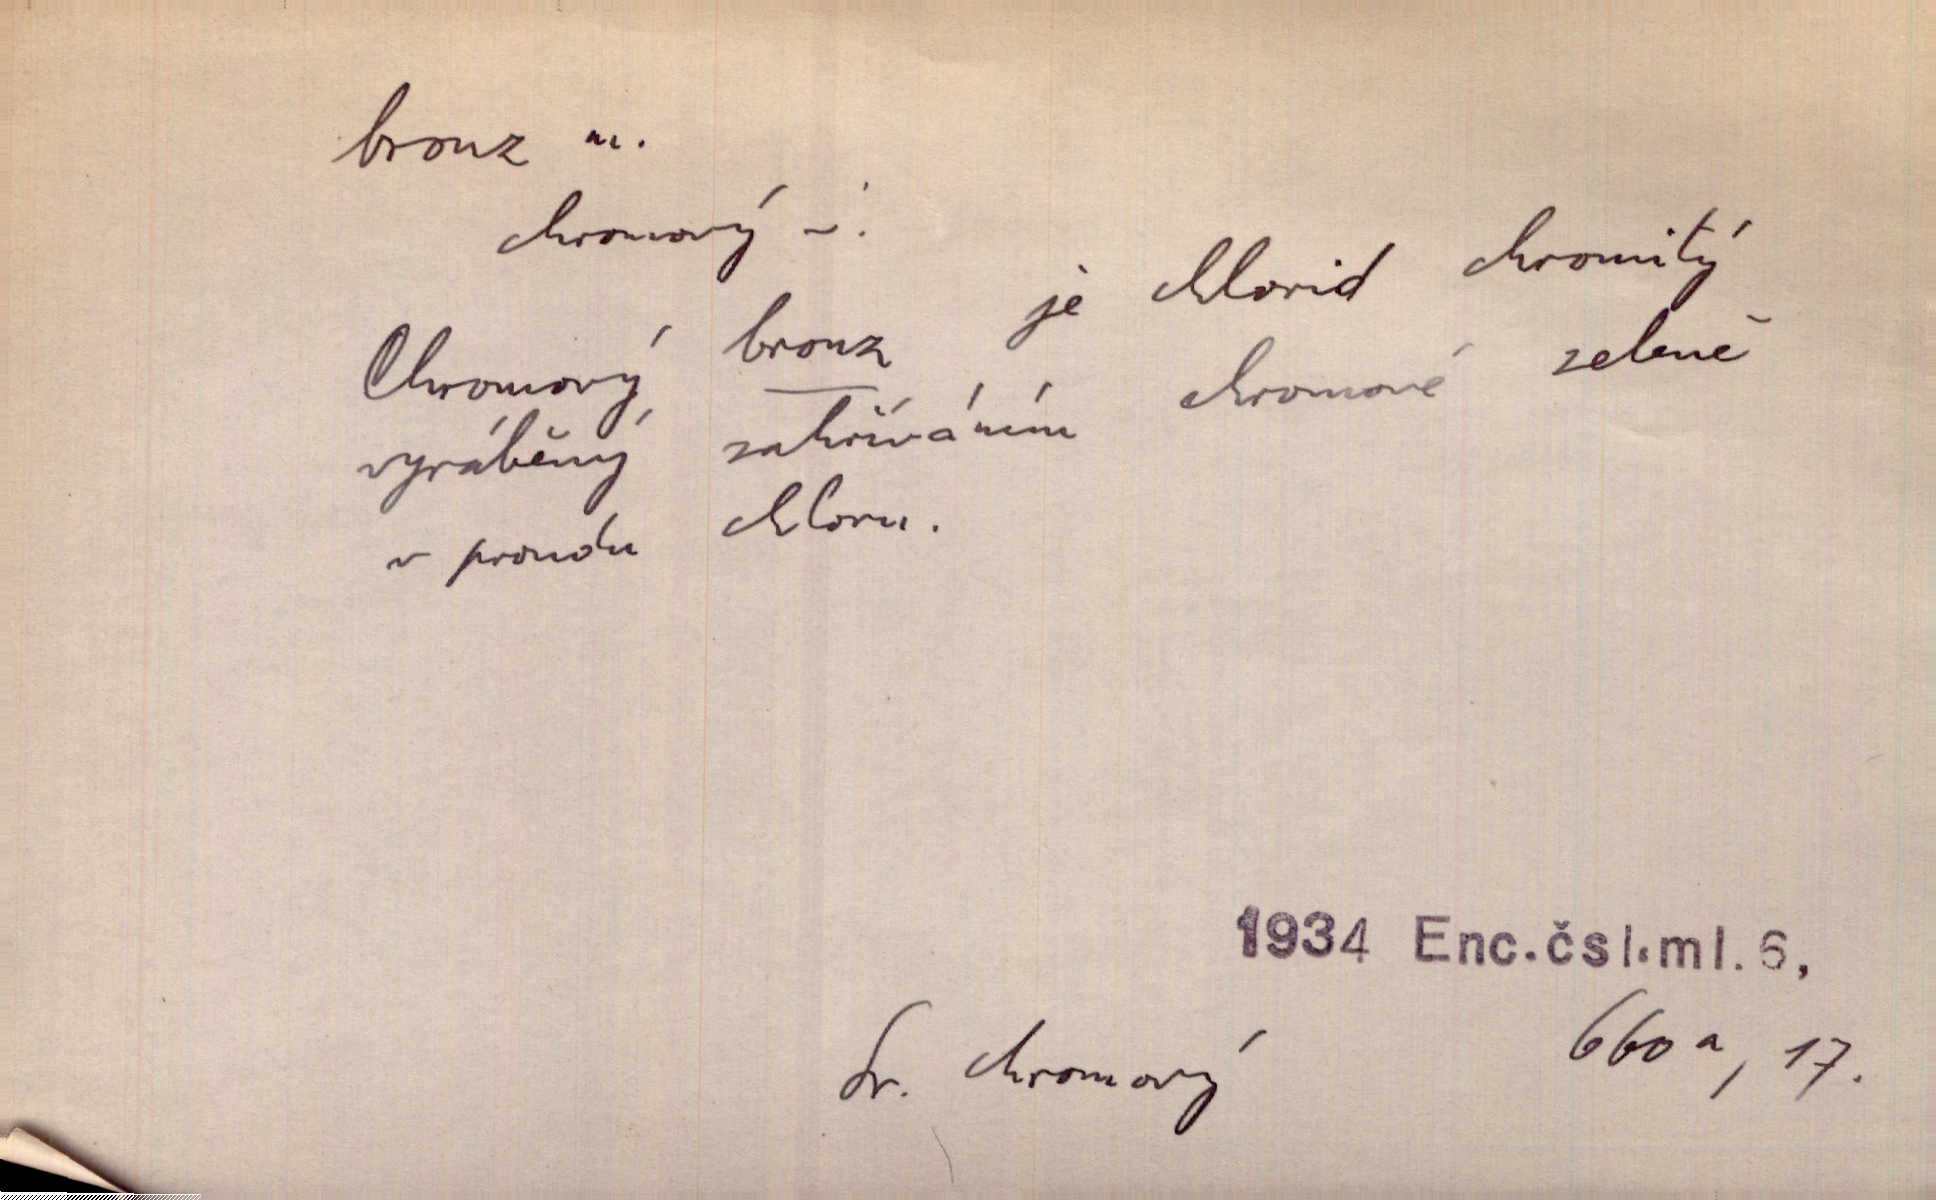 bronz m.
chromový ~.
Chromový bronz je chlorid chromitý
vyráběný zahříváním chromové zeleně
v proudu chloru.
1934 Enc.čsl.ml. 6,
660a, 17.
Sr. chromový